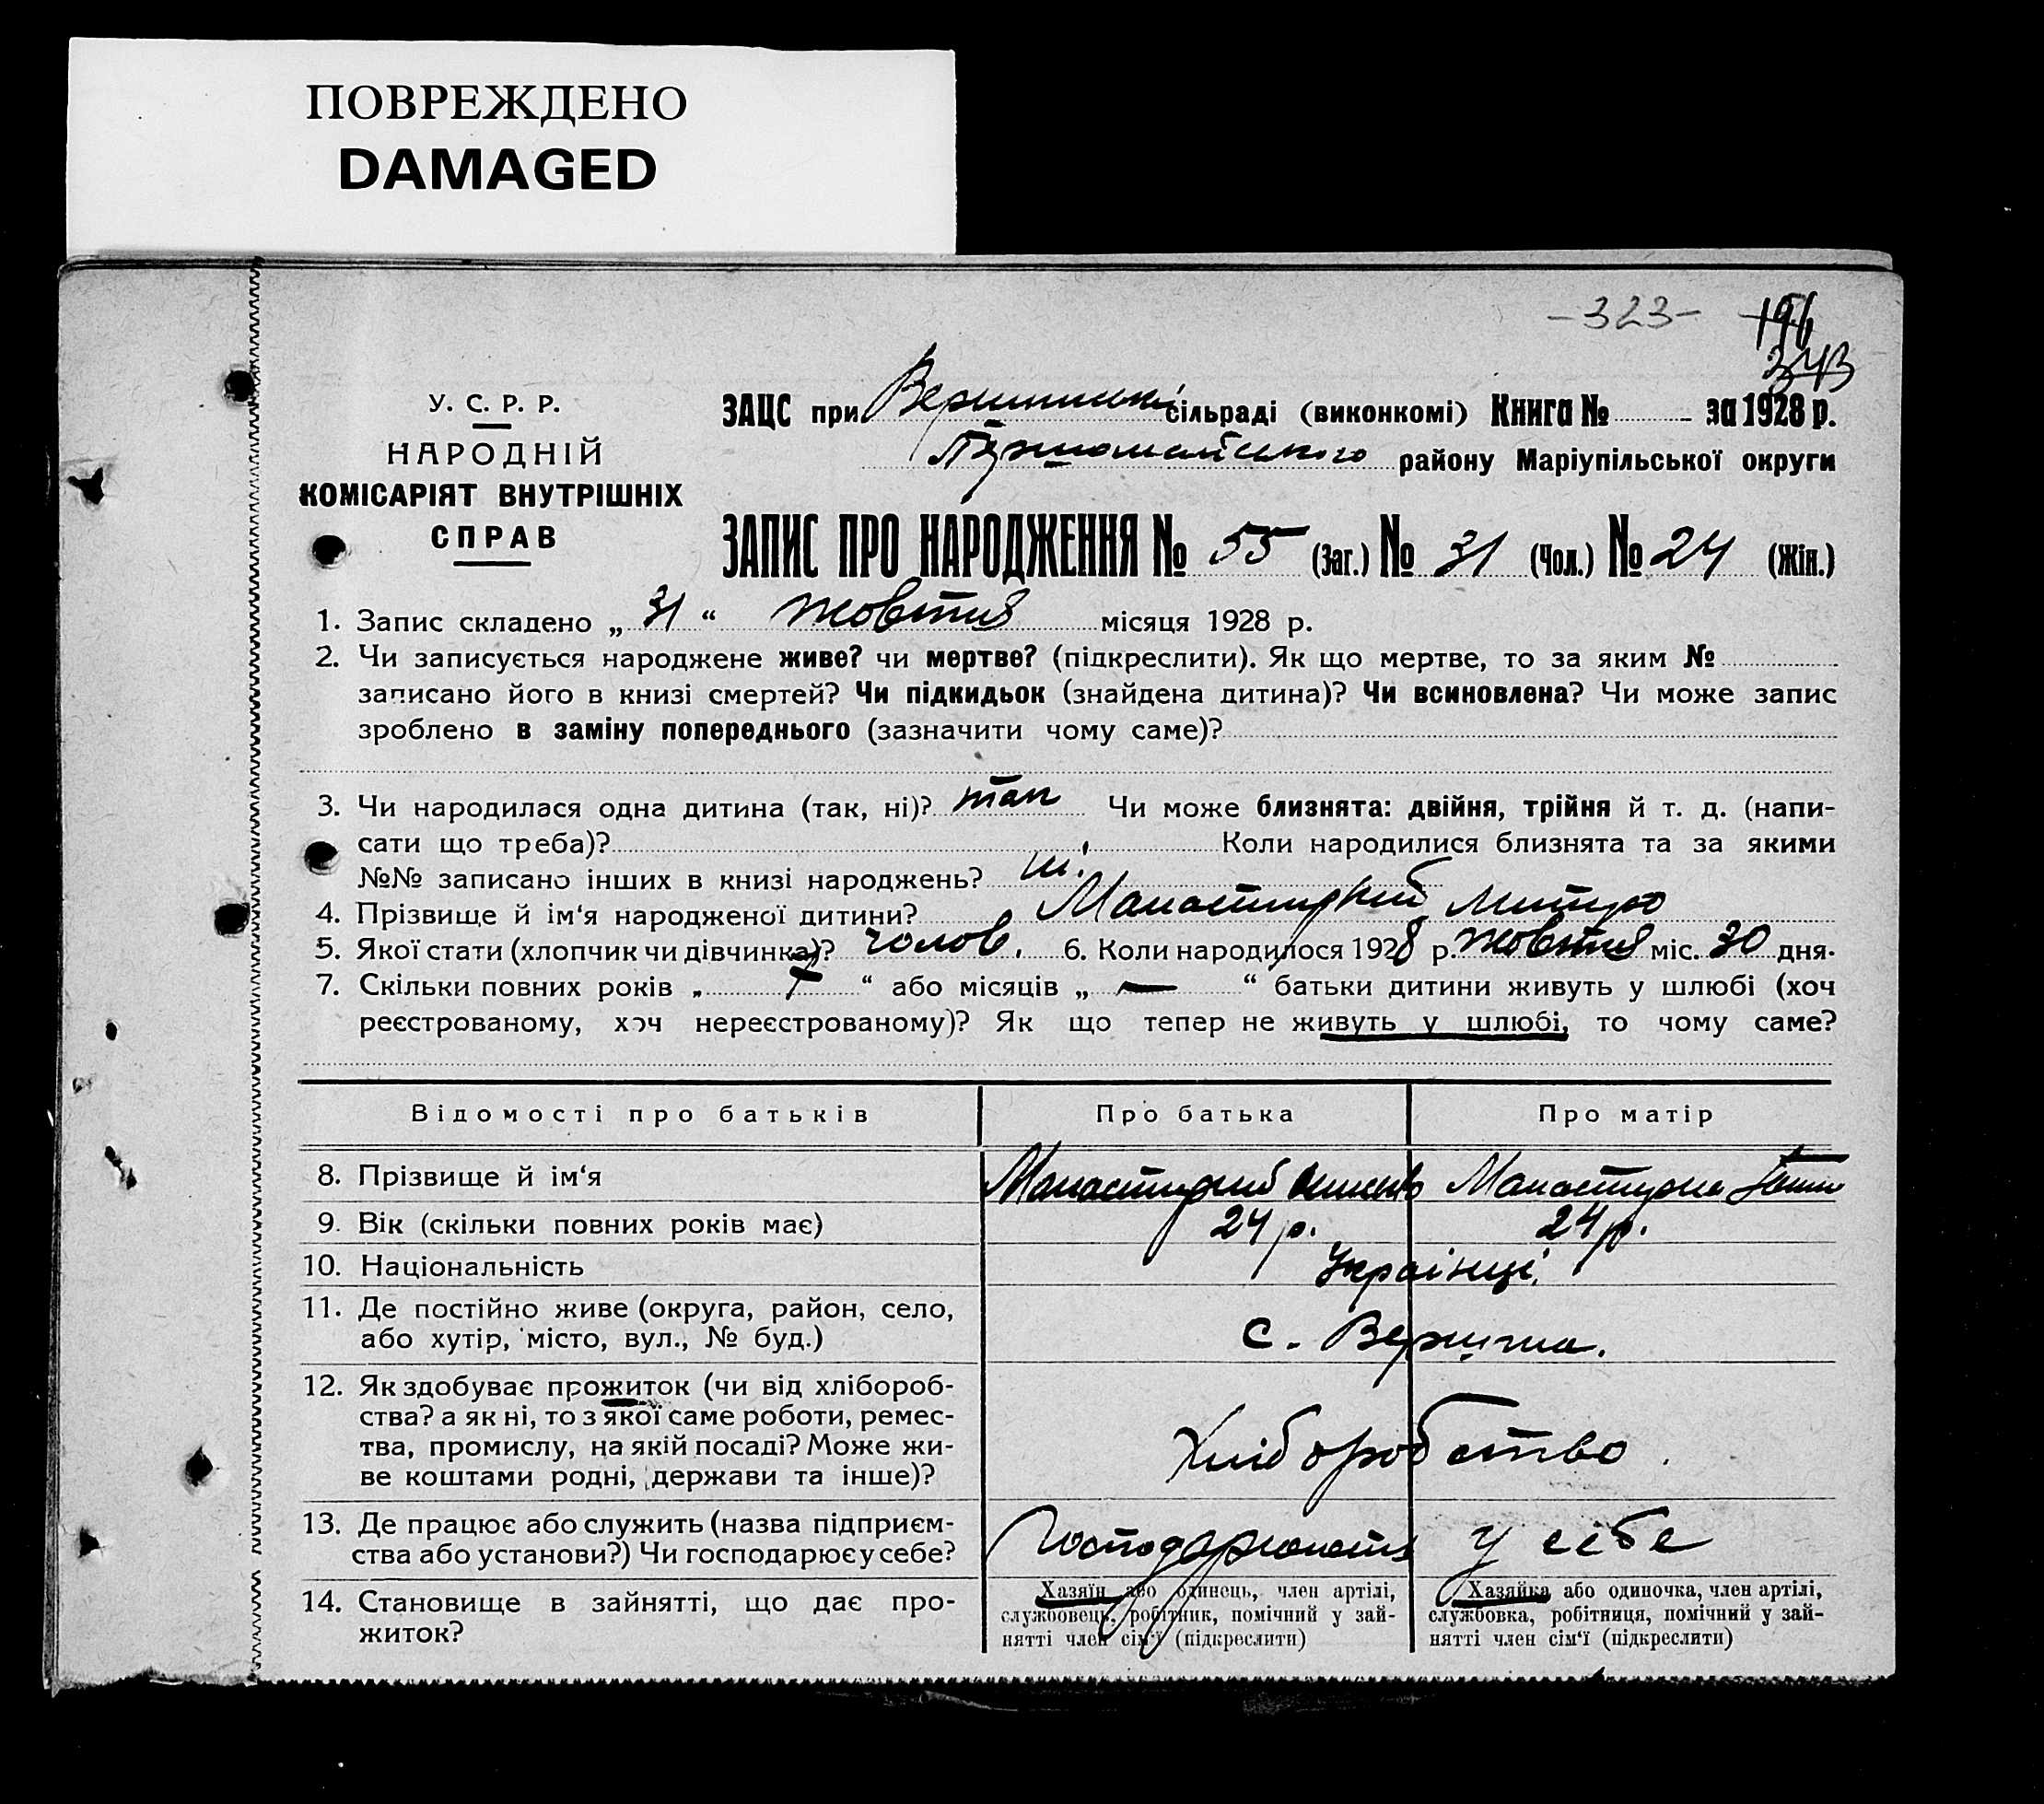 ПОВРЕЖДЕНО
DAMAGED
-323- 196
343
У. С. Р. Р.
НАРОДНІЙ
КОМІСАРІЯТ ВНУТРІШНІХ
СПРАВ
ЗАЦС при сільраді (виконкомі) Книга № за 1928 р.
Першомайського району Маріупільської округи
ЗАПИС ПРО НАРОДЖЕННЯ № 55 (Заг.) № 31 (Чол.) № 24 (Жін.)
1. Запис складено „ 31 “ жовтня місяця 1928 р.
2. Чи записується народжене живе? чи мертве? (підкреслити). Як що мертве, то за яким №
записано його в книзі смертей? Чи підкидьок (знайдена дитина)? Чи всиновлена? Чи може запис
зроблено в заміну попереднього (зазначити чому саме)?
3. Чи народилася одна дитина (так, ні)? так Чи може близнята: двійня, трійня й т. д. (напи-
сати що треба)? Коли народилися близнята та за якими
№№ записано інших в книзі народжень? ні.
4. Прізвище й ім‘я народженої дитини? Манастирний
5. Якої стати (хлопчик чи дівчинка)? чолов. 6. Коли народилося 1928 р. жовтня міс. 30 дня.
7. Скільки повних років „ 7 “ або місяців „ — “ батьки дитини живуть у шлюбі (хоч
реєстрованому, хоч нереєстрованому)? Як що тепер не живуть у шлюбі, то чому саме?
Відомості про батьків Про батька Про матір
8. Прізвище й ім‘я Манастирний Манастирна
9. Вік (скільки повних років має) 24 р. 24 р.
10. Національність Українці.
11. Де постійно живе (округа, район, село,
або хутір, місто, вул., № буд.) с. Вершина.
12. Як здобуває прожиток (чи від хлібороб-
ства? а як ні, то з якої саме роботи, ремес-
тва, промислу, на якій посаді? Може жи-
ве коштами родні, держави та інше)? Хліборобство.
13. Де працює або служить (назва підприєм-
ства або установи?) Чи господарює у себе? Господарюють у себе
14. Становище в зайнятті, що дає про-
житок?
Хазяїн або одинець, член артілі,
службовець, робітник, помічний у зай-
нятті член сім‘ї (підкреслити)
Хазяйка або одиночка, член артілі,
службовка, робітниця, помічний у зай-
нятті член сім‘ї (підкреслити)